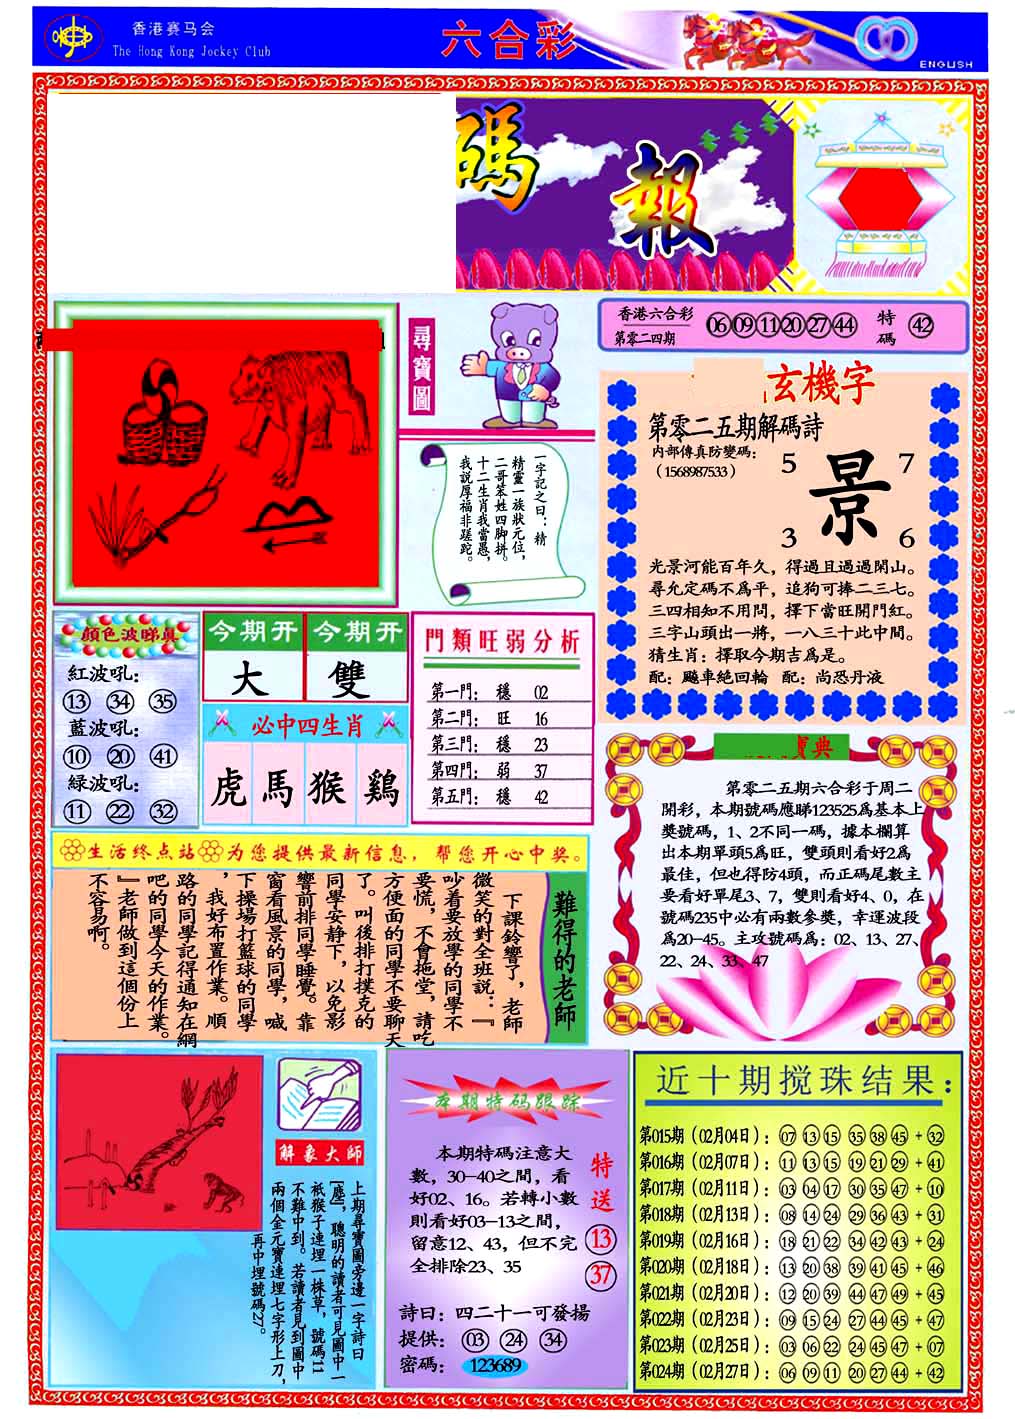 香港赛马会
The Hong Kong Jockey Club
六合彩
ENGLISH
碼報
尋寶圖
香港六合彩
第零二四期
06 09 11 20 27 44
特碼
42
一字記之曰：精
精靈一族狀元位，
二哥笨姓四脚拼。
十二生肖我當愚，
我説厚福非蹉跎。
玄機字
第零二五期解碼詩
内部傳真防變碼：
（1568987533）
5 7
景
3 6
光景河能百年久，得過且過過閑山。
尋允定碼不爲平，追狗可捧二三七。
三四相知不用問，擇下當旺開門紅。
三字山頭出一將，一八三十此中間。
猜生肖：擇取今期吉爲是。
配：飈車絶回輪 配：尚恐丹液
顔色波睇真
紅波吼：
13 34 35
藍波吼：
10 20 41
緑波吼：
11 22 32
今期开 今期开
大 雙
必中四生肖
虎 馬 猴 鷄
門類旺弱分析
第一門： 穩 02
第二門： 旺 16
第三門： 穩 23
第四門： 弱 37
第五門： 穩 42
寶典
第零二五期六合彩于周二
開彩，本期號碼應睇123525爲基本上
獎號碼，1、2不同一碼，據本欄算
出本期單頭5爲旺，雙頭則看好2爲
最佳，但也得防4頭，而正碼尾數主
要看好單尾3、7，雙則看好4、0，在
號碼235中必有兩數參獎，幸運波段
爲20-45。主攻號碼爲：02、13、27、
22、24、33、47
生活终点站 为您提供最新信息，帮您开心中奖。
難得的老師
下課鈴響了，老師
微笑的對全班説：『
吵着要放學的同學不
要慌，不會拖堂，請吃
方便面的同學不要聊天
了。叫後排打撲克的
同學安静下，以免影
響前排同學睡覺。靠
窗看風景的同學，喊
下操場打籃球的同學
，我好布置作業。順
路的同學記得通知在網
吧的同學今天的作業。
』老師做到這個份上
不容易啊。
解象大師
上期尋寶圖旁邊一字詩曰
[應]，聰明的讀者可見圖中一
衹猴子連埋一株草，號碼11
不難中到。若讀者見到圖中
兩個金元寶連埋七字形上刀，
再中埋號碼27。
本期特码跟踪
本期特碼注意大
數，30-40之間，看
好02、16。若轉小數
則看好03-13之間，
留意12、43，但不完
全排除23、35
特送
13
37
詩曰：四二十一可發揚
提供： 03 24 34
密碼： 123689
近十期搅珠结果：
第015期（02月04日）：07 13 15 35 38 45 + 32
第016期（02月07日）：11 13 15 19 21 29 + 41
第017期（02月11日）：03 04 17 30 35 47 + 10
第018期（02月13日）：08 14 24 29 36 43 + 31
第019期（02月16日）：18 21 22 34 42 43 + 24
第020期（02月18日）：13 20 38 39 41 45 + 46
第021期（02月20日）：12 20 39 44 47 49 + 45
第022期（02月23日）：09 15 24 27 44 45 + 47
第023期（02月25日）：03 06 22 24 45 47 + 07
第024期（02月27日）：06 09 11 20 27 44 + 42